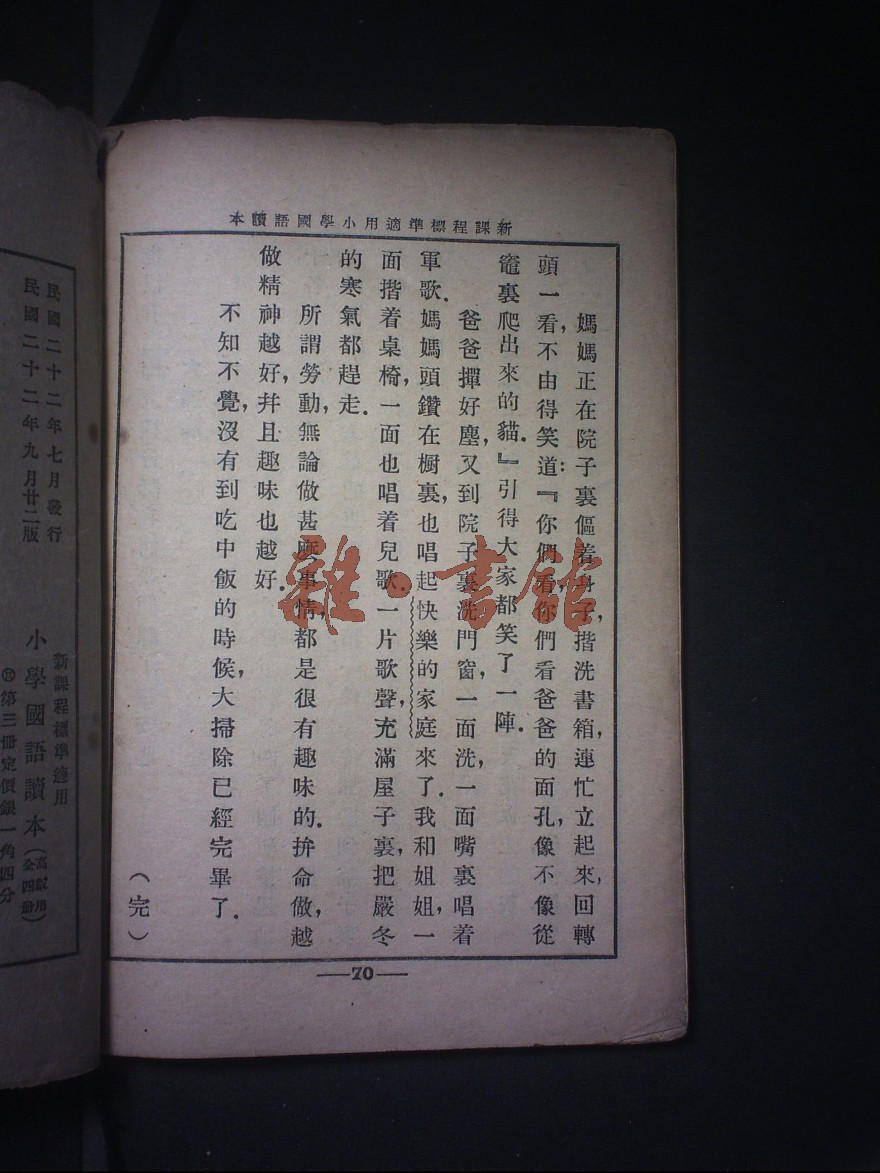 新課程標準適用小學國語讀本
媽媽正在院子裏傴着身子,揩洗書箱,連忙立起來,回轉
頭一看,不由得笑道:『你們看,你們看爸爸的面孔,像不像從
竈裏爬出來的貓.』引得大家都笑了一陣.
爸爸撣好塵,又到院子裏洗門窗,一面洗,一面嘴裏唱着
軍歌.媽媽頭鑽在橱裏,也唱起快樂的家庭來了.我和姐姐,一
面揩着桌椅,一面也唱着兒歌.一片歌聲,充滿屋子裏,把嚴冬
的寒氣都趕走.
所謂勞動,無論做甚麽事情,都是很有趣味的.拚命做,越
做精神越好,幷且趣味也越好.
不知不覺,沒有到吃中飯的時候,大掃除已經完畢了.
(完)
—70—
民國二十二年七月發行
民國二十二年九月廿二版
新課程標準適用
小學國語讀本(高級用全四冊)
第三冊定價銀一角四分
雜·書館